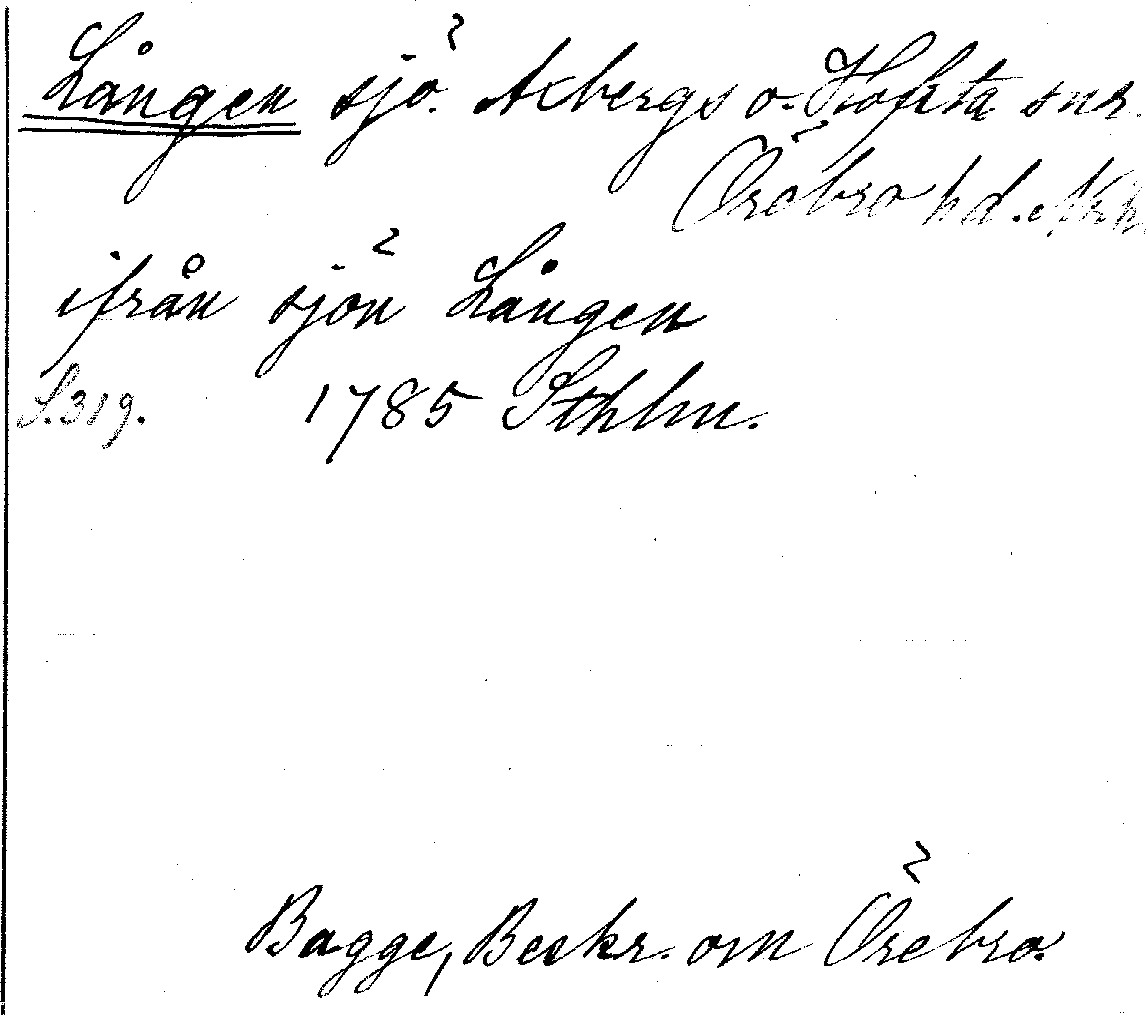 Lången sjö. Axbergs o. Hofsta snr.
Örebro hd. Nrk
ifrån sjön Lången
S.319. 1785 Sthlm.
Bagge, Beskr. om Örebro.